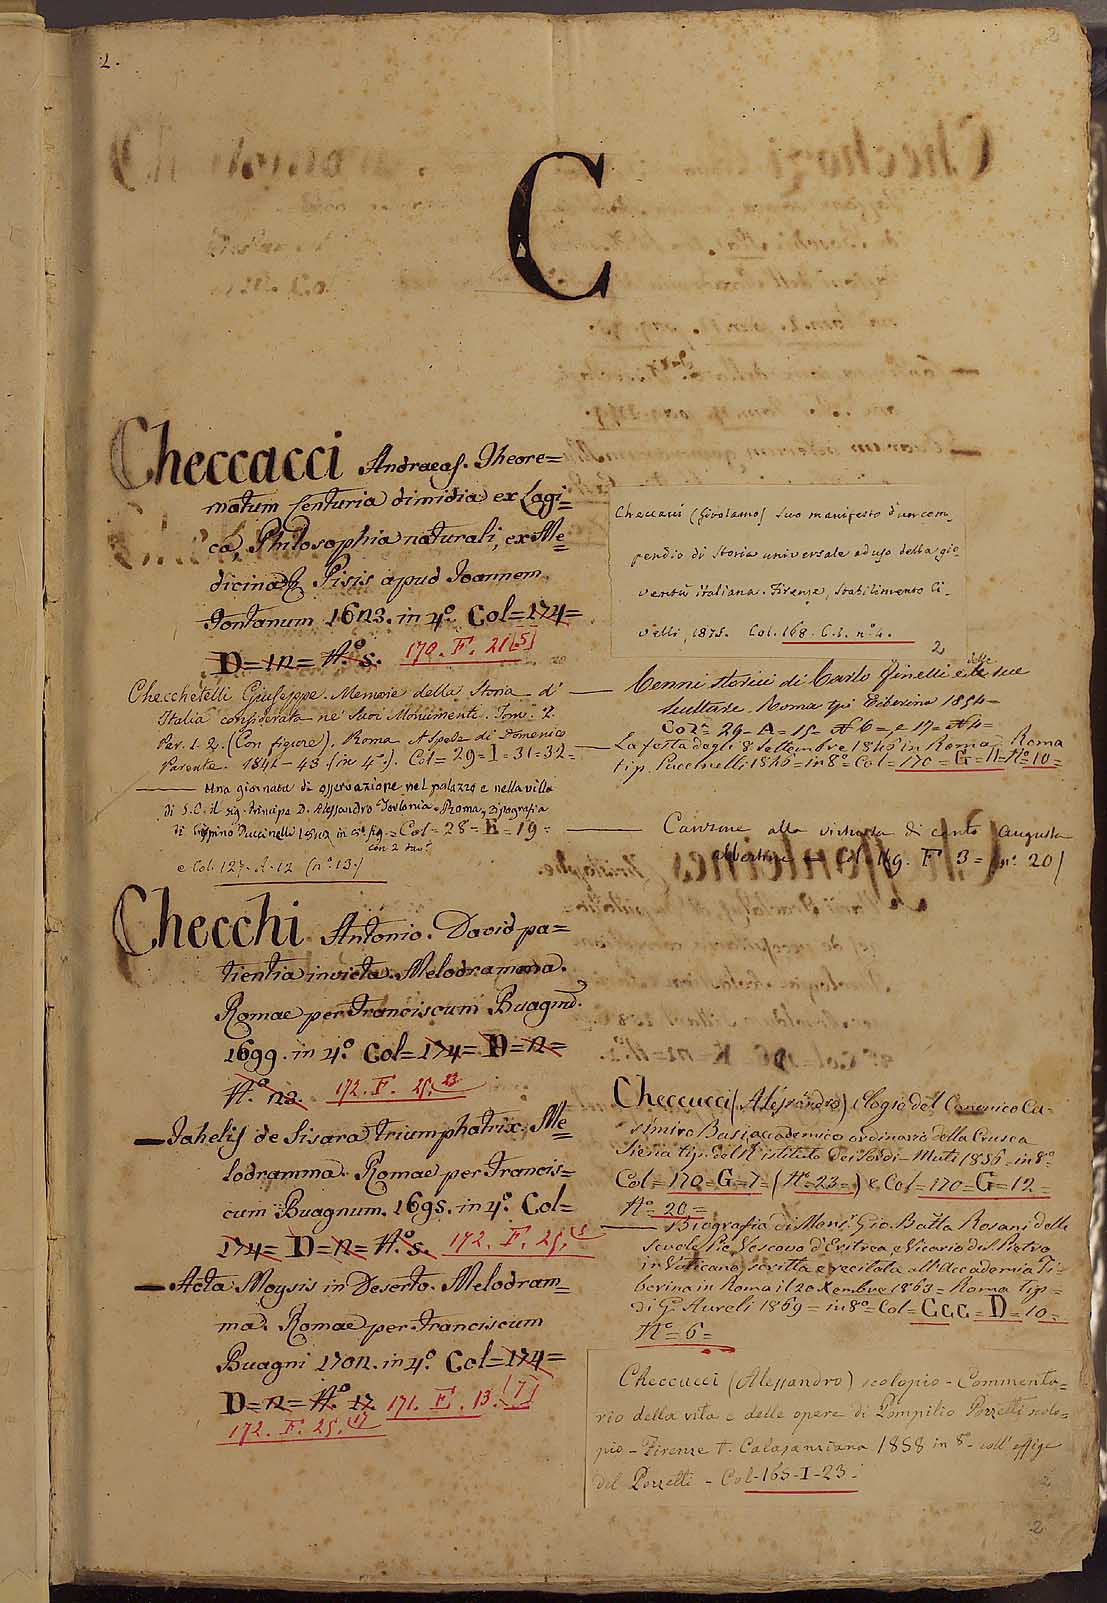 2.
2
C
Checcacci Andraeas. Theore=
matum Centuria dimidia ex Logi=
ca, Philosophia naturali, ex Me=
dicina & Pisis apud Joannem
Fontanum 1623. in 4.º Col=174=
D=12= N.º 5. 170. F. 21(5)
Checchetelli Giuseppe. Memorie della Storia d'
Italia considerata ne' Suoi Monumenti. Tom. 2.
Par. 1. 2. (Con figure). Roma A Spese di Domenico
Parente. 1842-43 (in 4º.). Col=29=I=31=32=
Una giornata di osservazione nel palazzo e nella villa
di S.E. il sig. Principe D. Alessandro Torlonia. Roma, Tipografia
di Crispino Puccinelli 1842 in 8º fig.=Col=28=E=19=
con 2 tav.e
e Col. 127. A. 12 (nº. 13.)
Checchi Antonio. David pa=
tientia invicta. Melodramma.
Romae per Franciscum Buagni.
1699. in 4.º Col=174=D=12=
N.º 12. 172. F. 25. 23
— Jahelis de Sisara triumphatrix. Me=
lodramma. Romae per Francis=
cum Buagnum. 1695. in 4.º Col=
174=D=12=N.º 5. 172. F. 25. 5
— Acta Moysis in Deserto. Melodram=
ma. Romae per Franciscum
Buagni 1702. in 4.º Col=174=
D=12=N.º 17 171. E. 13. (7)
172. F. 25. 17
Checcacci (Girolamo) Suo manifesto d'un com-
pendio di Storia universale ad uso della gio-
ventù italiana. Firenze, Stabilimento Ci-
velli, 1875. Col. 168. C.1. nº. 4.
2
— Cenni storici di Carlo Finelli e delle sue
sculture. Roma tip. Tiberina 1854=
Col= 29=A=15=N 6=, e 17=N 4=
— La festa degli 8 settembre 1846 in Roma = Roma
tip. Puccinelli 1846=in 8º=Col=170=G=11=Nº=10=
— Canzone alla vittoria di canto Augusta
Albertini Col. 169. F. 3= (nº. 20)
Checcucci (Alessandro) Elogio del Canonico Ca-
simiro Basi accademico ordinario della Crusca
Siena tip. del R. istituto dei Sordi-Muti 1856=in 8º=
Col=170=G=7=(Nº=23=) e Col=170=G=12=
Nº=20=
— Biografia di Monsr. Gio. Batta Rosani delle
Scuole Pie Vescovo d'Eritrea, e Vicario di S. Pietro
in Vaticano, scritta e recitata all'Accademia Ti-
berina in Roma il 20 Xembre 1863= Roma tip=
di G. Aureli 1869=in 8º=Col=CCC=D=10=
Nº=6=
Checcucci (Alessandro) scolopio - Commenta=
rio della vita e delle opere di Pompilio Pozzetti scolo=
pio - Firenze t. Calasanziana 1858 in 8º- coll'effige
del Pozzetti - Col-165-I-23-
2